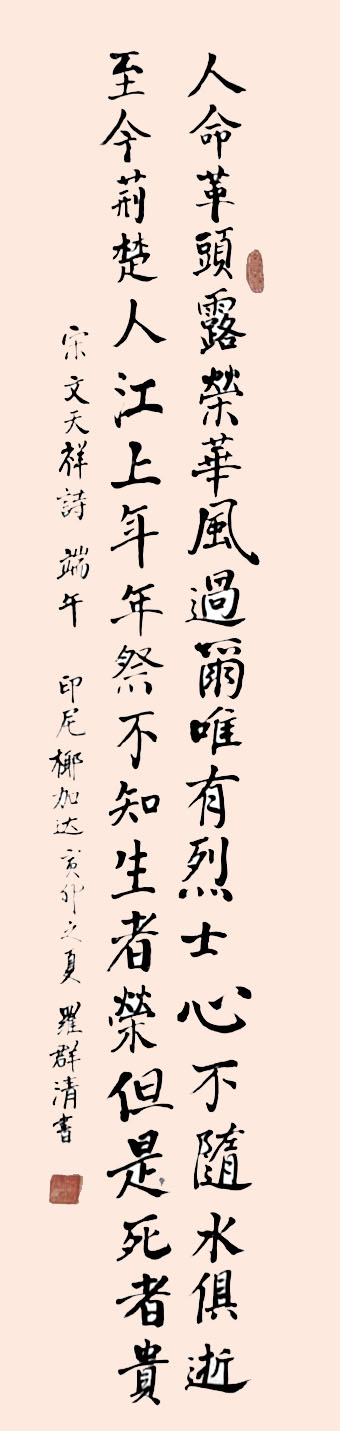 人命草頭露榮華風過爾唯有烈士心不隨水俱逝
至今荊楚人江上年年祭不知生者榮但是死者貴
宋文天祥詩 端午 印尼椰加达癸卯之夏 羅群清書